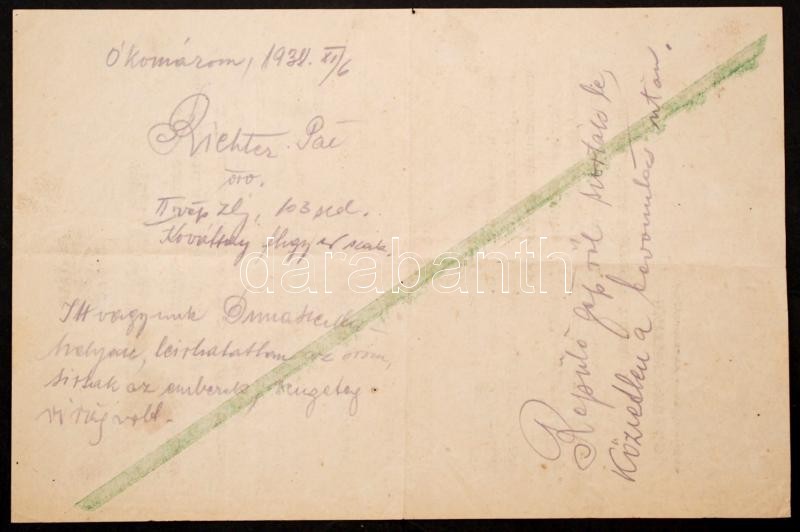 Ókomárom, 1938. XI/6
Richter Pál
örv.
II vép zlj, 103 szd.
Kováttsay
Itt vagyunk Dunaszerdahely
helyen, leirhatatlan az öröm,
sirnak az emberek, rengeteg
virág volt.
Repülő gép ről szórták le,
Közvetlen a bevonulás után.
darabanth